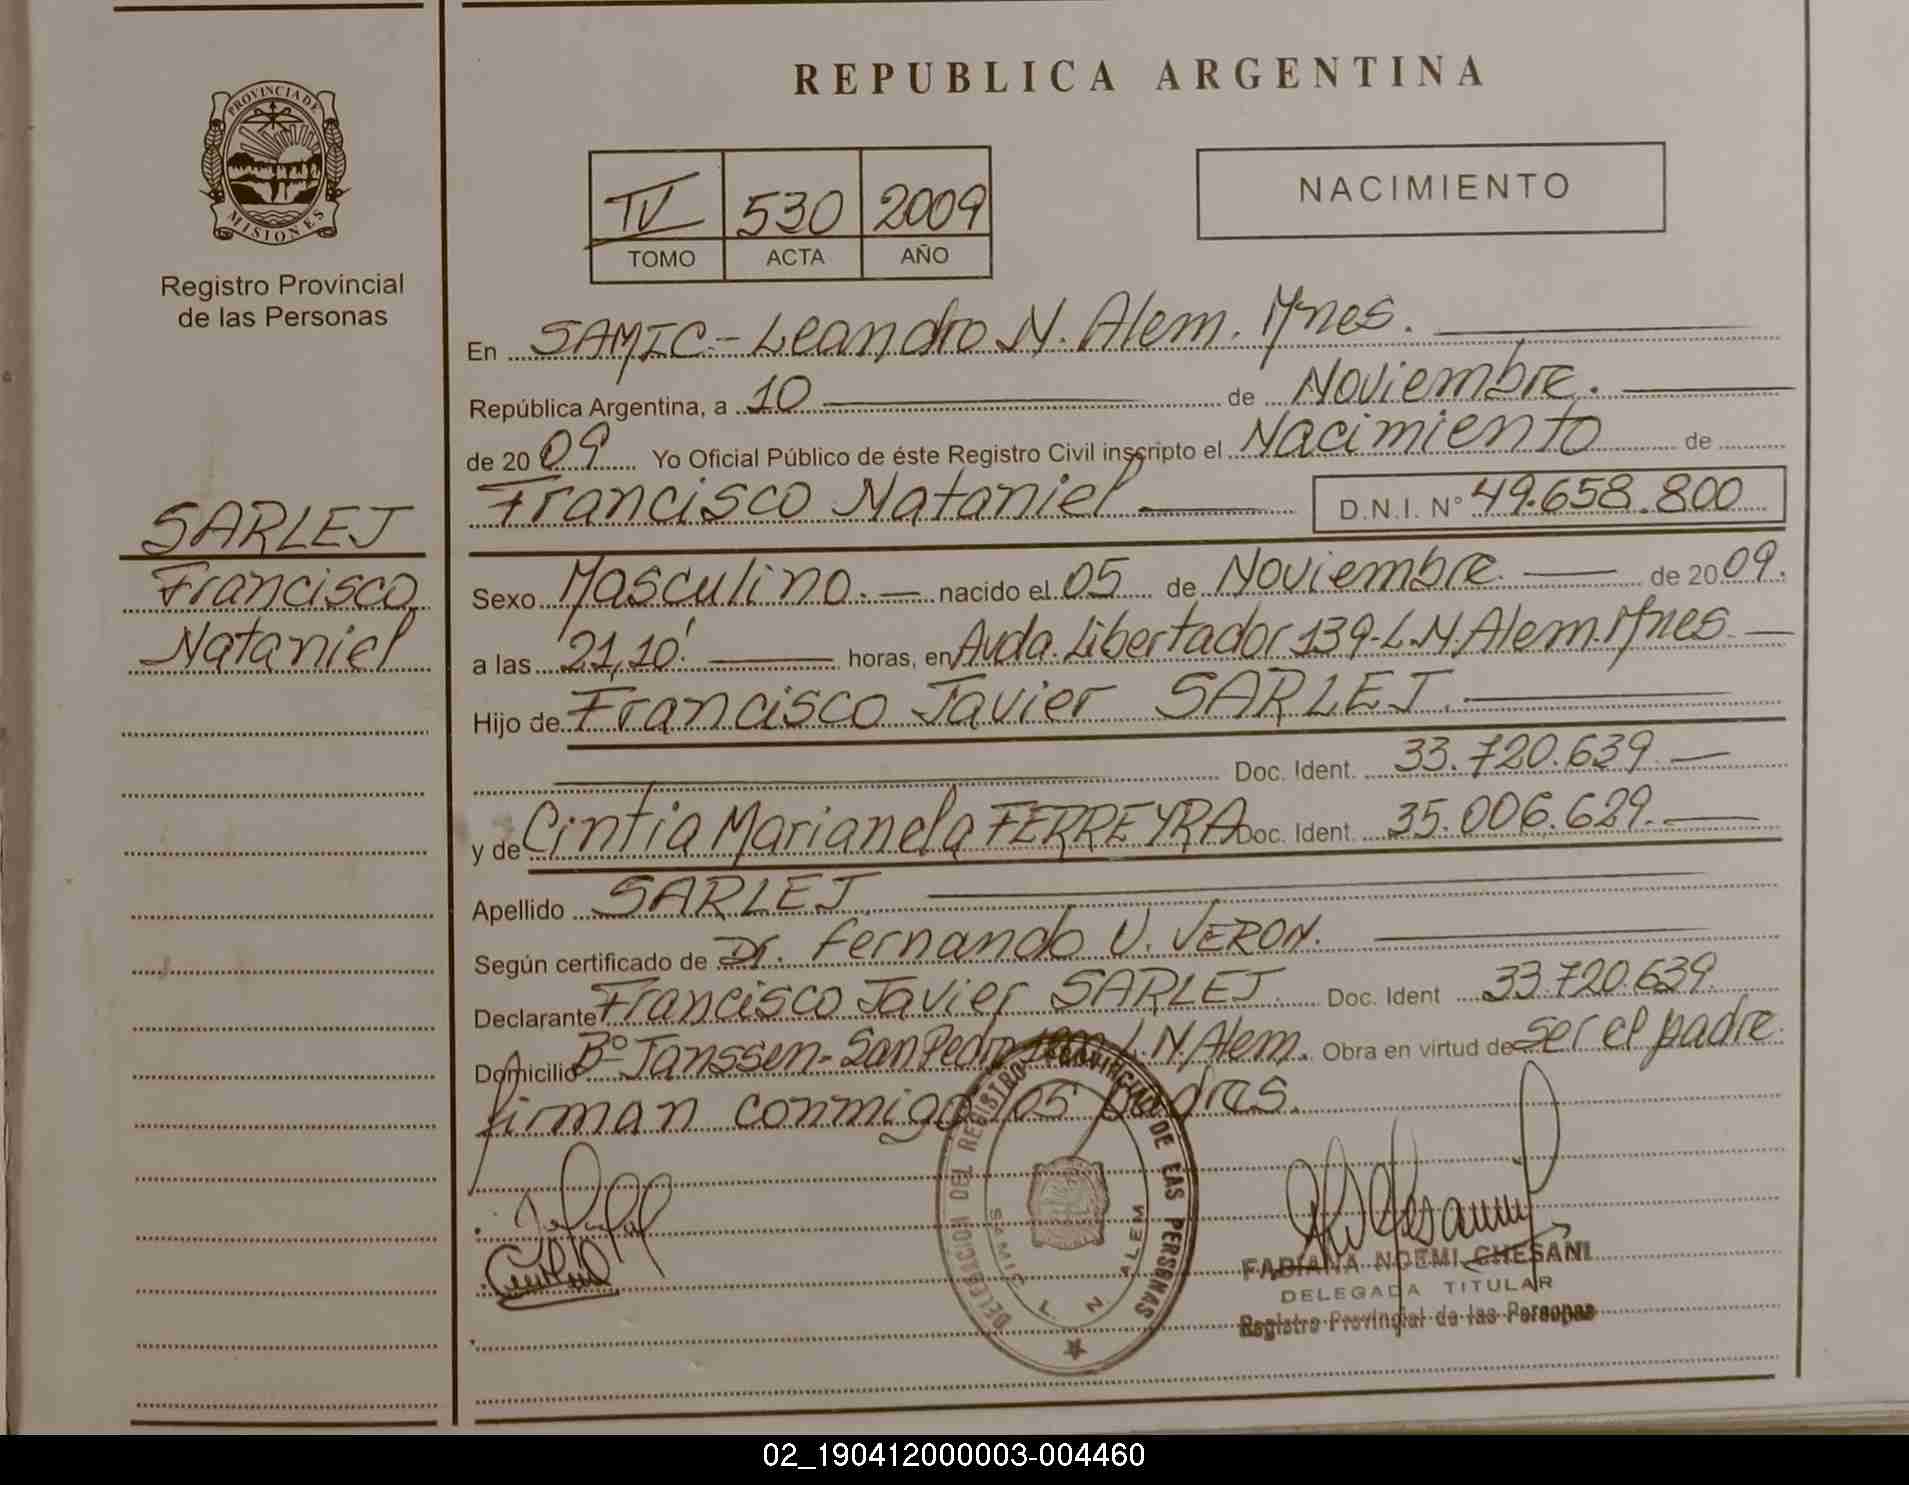 REPUBLICA ARGENTINA
PROVINCIA DE
MISIONES
Registro Provincial
de las Personas
IV 530 2009
TOMO ACTA AÑO
NACIMIENTO
SARLEJ
Francisco
Nataniel
En SAMIC - Leandro N. Alem. Mnes.
República Argentina, a 10 de Noviembre.
de 2009 Yo Oficial Público de éste Registro Civil inscripto el Nacimiento de
Francisco Nataniel D.N.I. N° 49.658.800
Sexo Masculino. nacido el 05 de Noviembre. de 2009.
a las 21,10' horas, en Avda. Libertador 139-L.N.Alem.Mnes.
Hijo de Francisco Javier SARLEJ.
Doc. Ident. 33.720.639.
y de Cintia Marianela FERREYRA Doc. Ident. 35.006.629.
Apellido SARLEJ
Según certificado de Dr. Fernando V. VERON.
Declarante Francisco Javier SARLEJ. Doc. Ident 33.720.639.
Domicilio Bº Janssen- San Pedro L.N.Alem. Obra en virtud de ser el padre.
firman conmigo los padres.
DELEGACION DEL REGISTRO PROVINCIAL DE LAS PERSONAS
SAMIC L. N. ALEM
FABIANA NOEMI CHESANI
DELEGADA TITULAR
Registro Provincial de las Personas
02_190412000003-004460